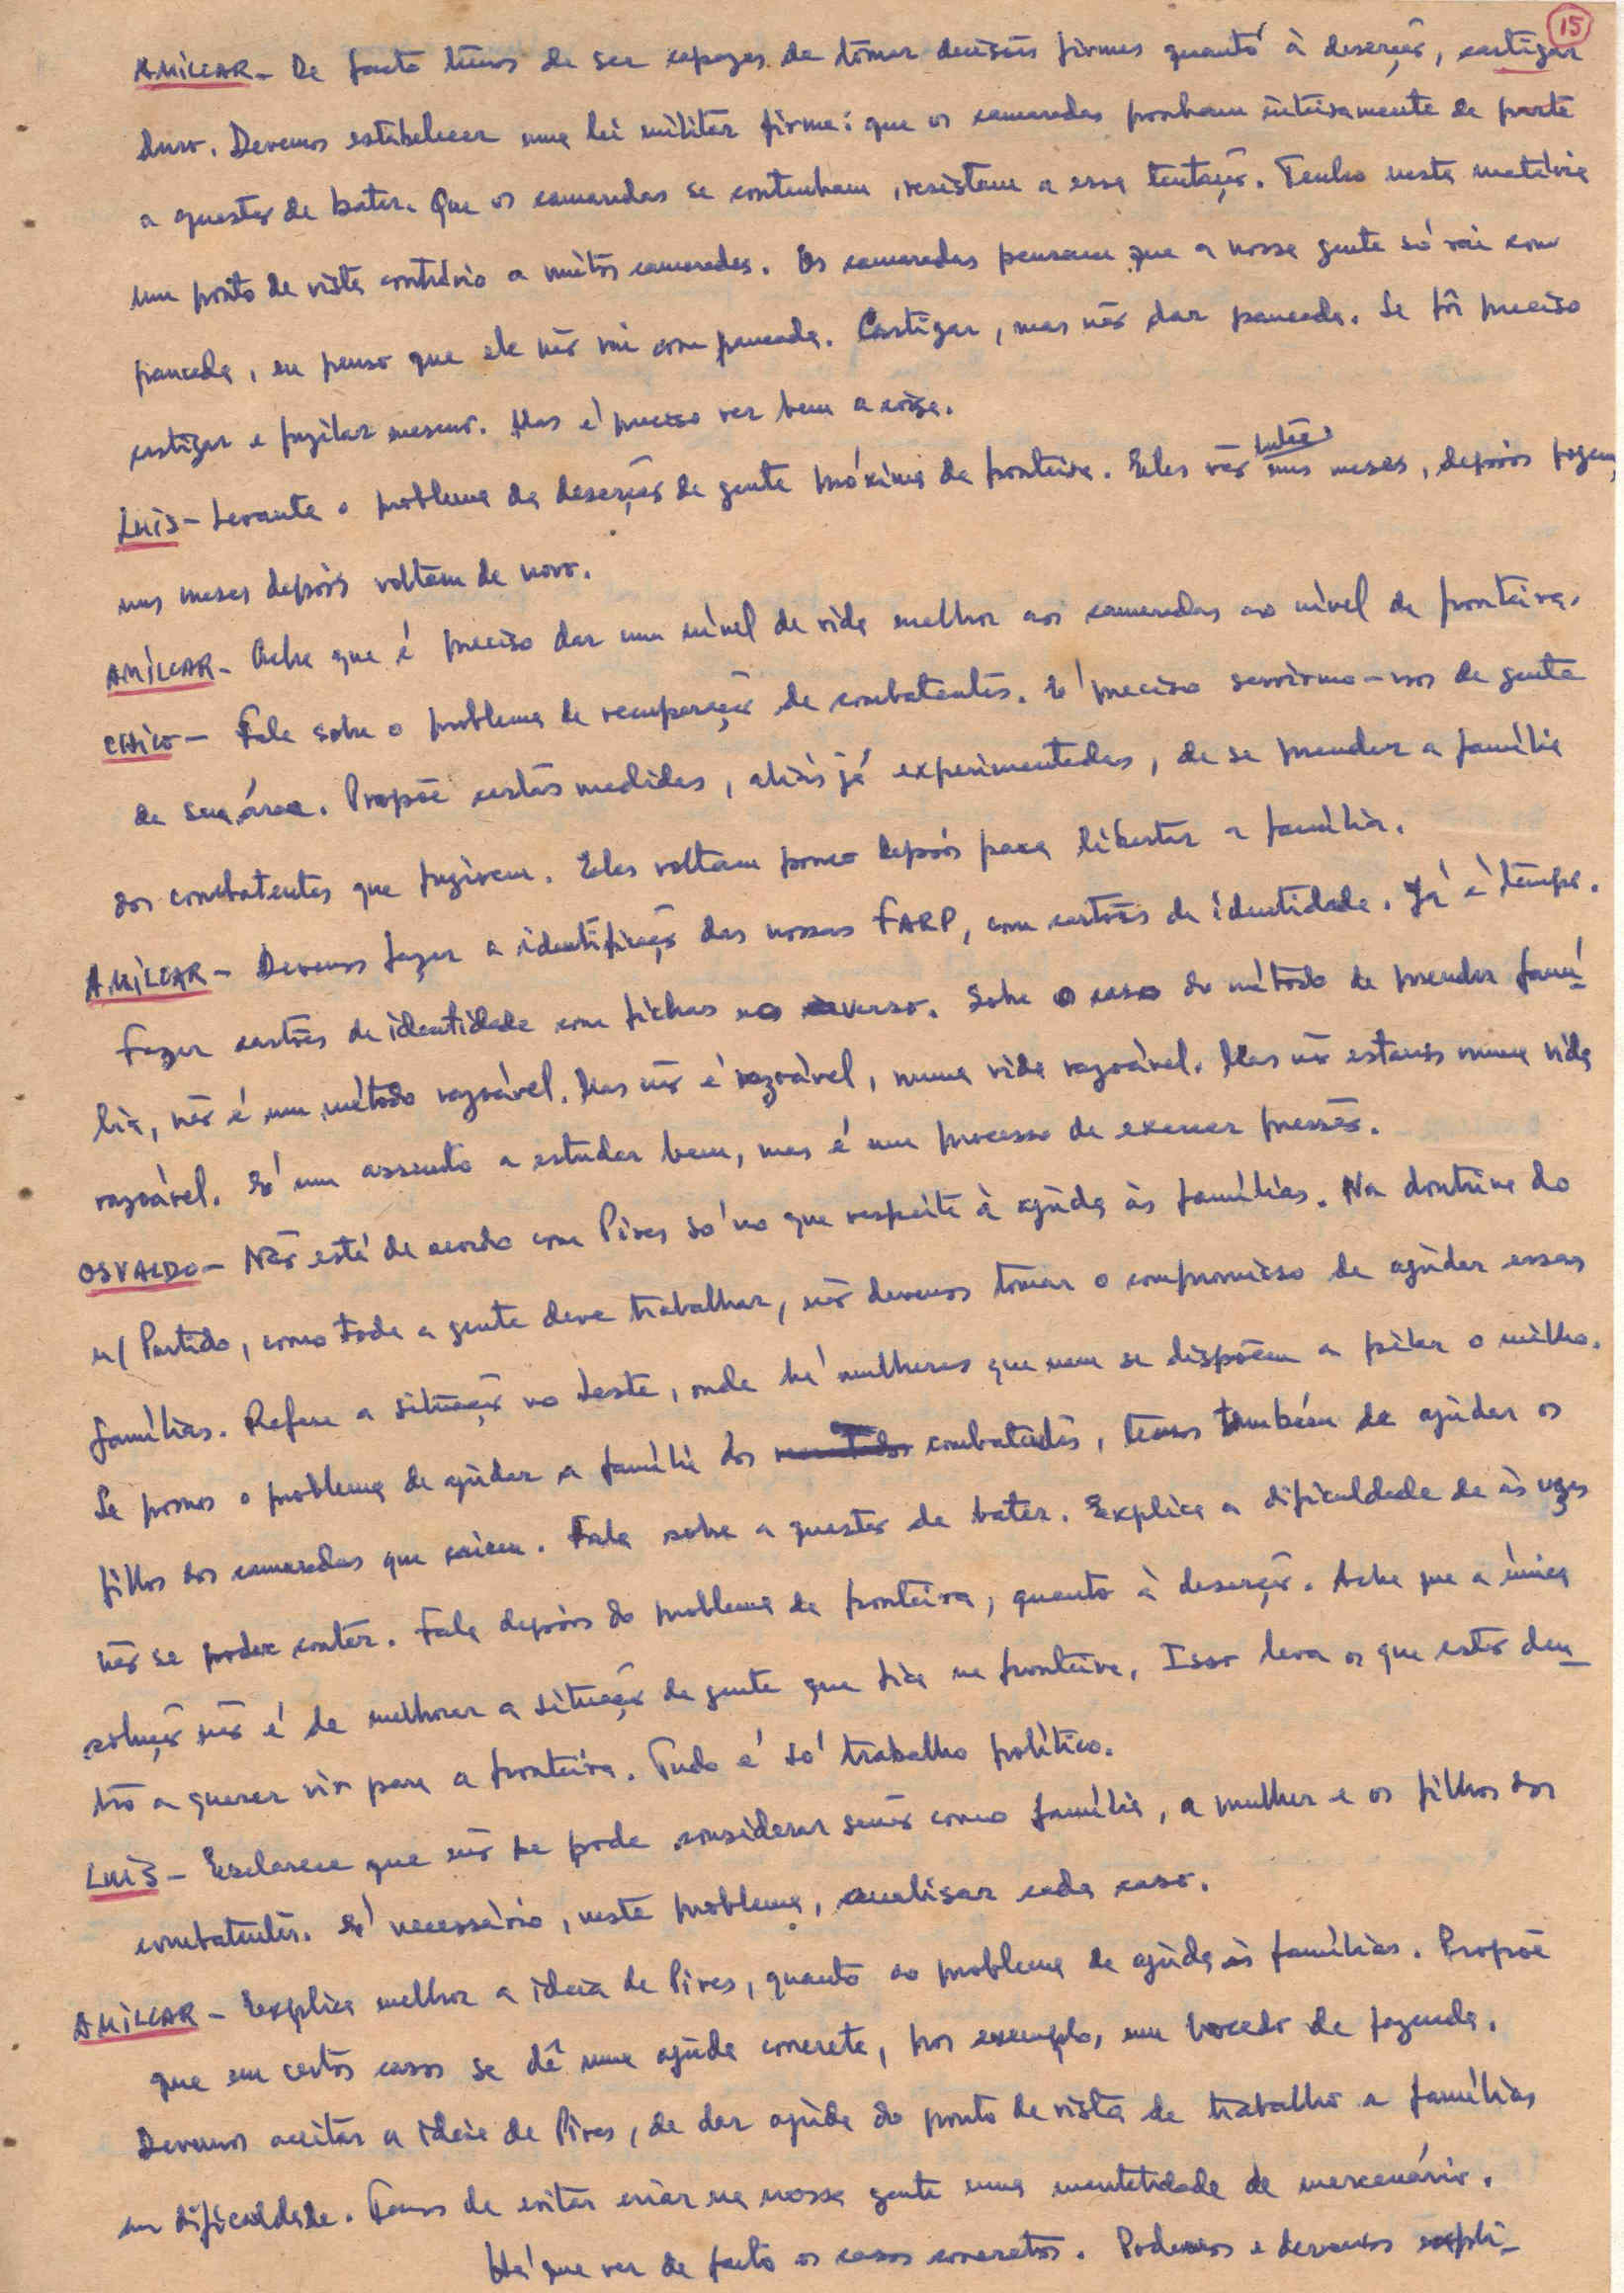 15
AMILCAR - De facto temos de ser capazes de tomar decisões firmes quanto à deserção, castigar
duro. Devemos estabelecer uma lei militar firme: que os camaradas ponham inteiramente de parte
a questão de bater. Que os camaradas se contenham, resistam a essa tentação. Tenho nesta matéria
um ponto de vista contrário a muitos camaradas. Os camaradas pensam que a nossa gente só vai com
pancada, eu penso que ele não vai com pancada. Castigar, mas não dar pancada. Se fôr preciso
castigar e fuzilar mesmo. Mas é preciso ver bem a coisa.
LUIS - Levanta o problema da deserção de gente próxima da fronteira. Eles vão lutar uns meses, depois fogem,
uns meses depois voltam de novo.
AMILCAR - Acha que é preciso dar um nível de vida melhor aos camaradas ao nível da fronteira.
CHICO - Fala sobre o problema de recuperação de combatentes. É preciso servirmo-nos de gente
de sua área. Propõe certas medidas, aliás já experimentadas, de se prender a família
dos combatentes que fugirem. Eles voltam pouco depois para libertar a família.
AMILCAR - Devemos fazer a identificação das nossas FARP, com cartões de identidade. Já é tempo.
Fazer cartões de identidade com fichas no verso. Sobre o caso do método de prender famí-
lia, não é um método razoável. Mas não é razoável, numa vida razoável. Mas não estamos numa vida
razoável. É um assunto a estudar bem, mas é um processo de exercer pressão.
OSVALDO - Não está de acordo com Pires só no que respeita à ajuda às famílias. Na doutrina do
n/ Partido, como toda a gente deve trabalhar, não devemos tomar o compromisso de ajudar essas
famílias. Refere a situação no Leste, onde há mulheres que nem se dispõem a pilar o milho.
Se pomos o problema de ajudar a família dos combatentes, temos também de ajudar os
filhos dos camaradas que caiem. Fala sobre a questão de bater. Explica a dificuldade de às vezes
não se poder conter. Fala depois do problema da fronteira, quanto à deserção. Acha que a única
solução não é de melhorar a situação da gente que fica na fronteira. Isso leva os que estão den-
tro a querer vir para a fronteira. Tudo é só trabalho político.
LUIS - Esclarece que não se pode considerar senão como família, a mulher e os filhos dos
combatentes. É necessário, neste problema, analisar cada caso.
AMILCAR - Explica melhor a ideia de Pires, quanto ao problema da ajuda às famílias. Propõe
que em certos casos se dê uma ajuda concreta, por exemplo, um bocado de fazenda.
Devemos aceitar a ideia de Pires, de dar ajuda do ponto de vista de trabalho a famílias
em dificuldade. Temos de evitar criar na nossa gente uma mentalidade de mercenário.
Há que ver de facto os casos concretos. Podemos e devemos expli-